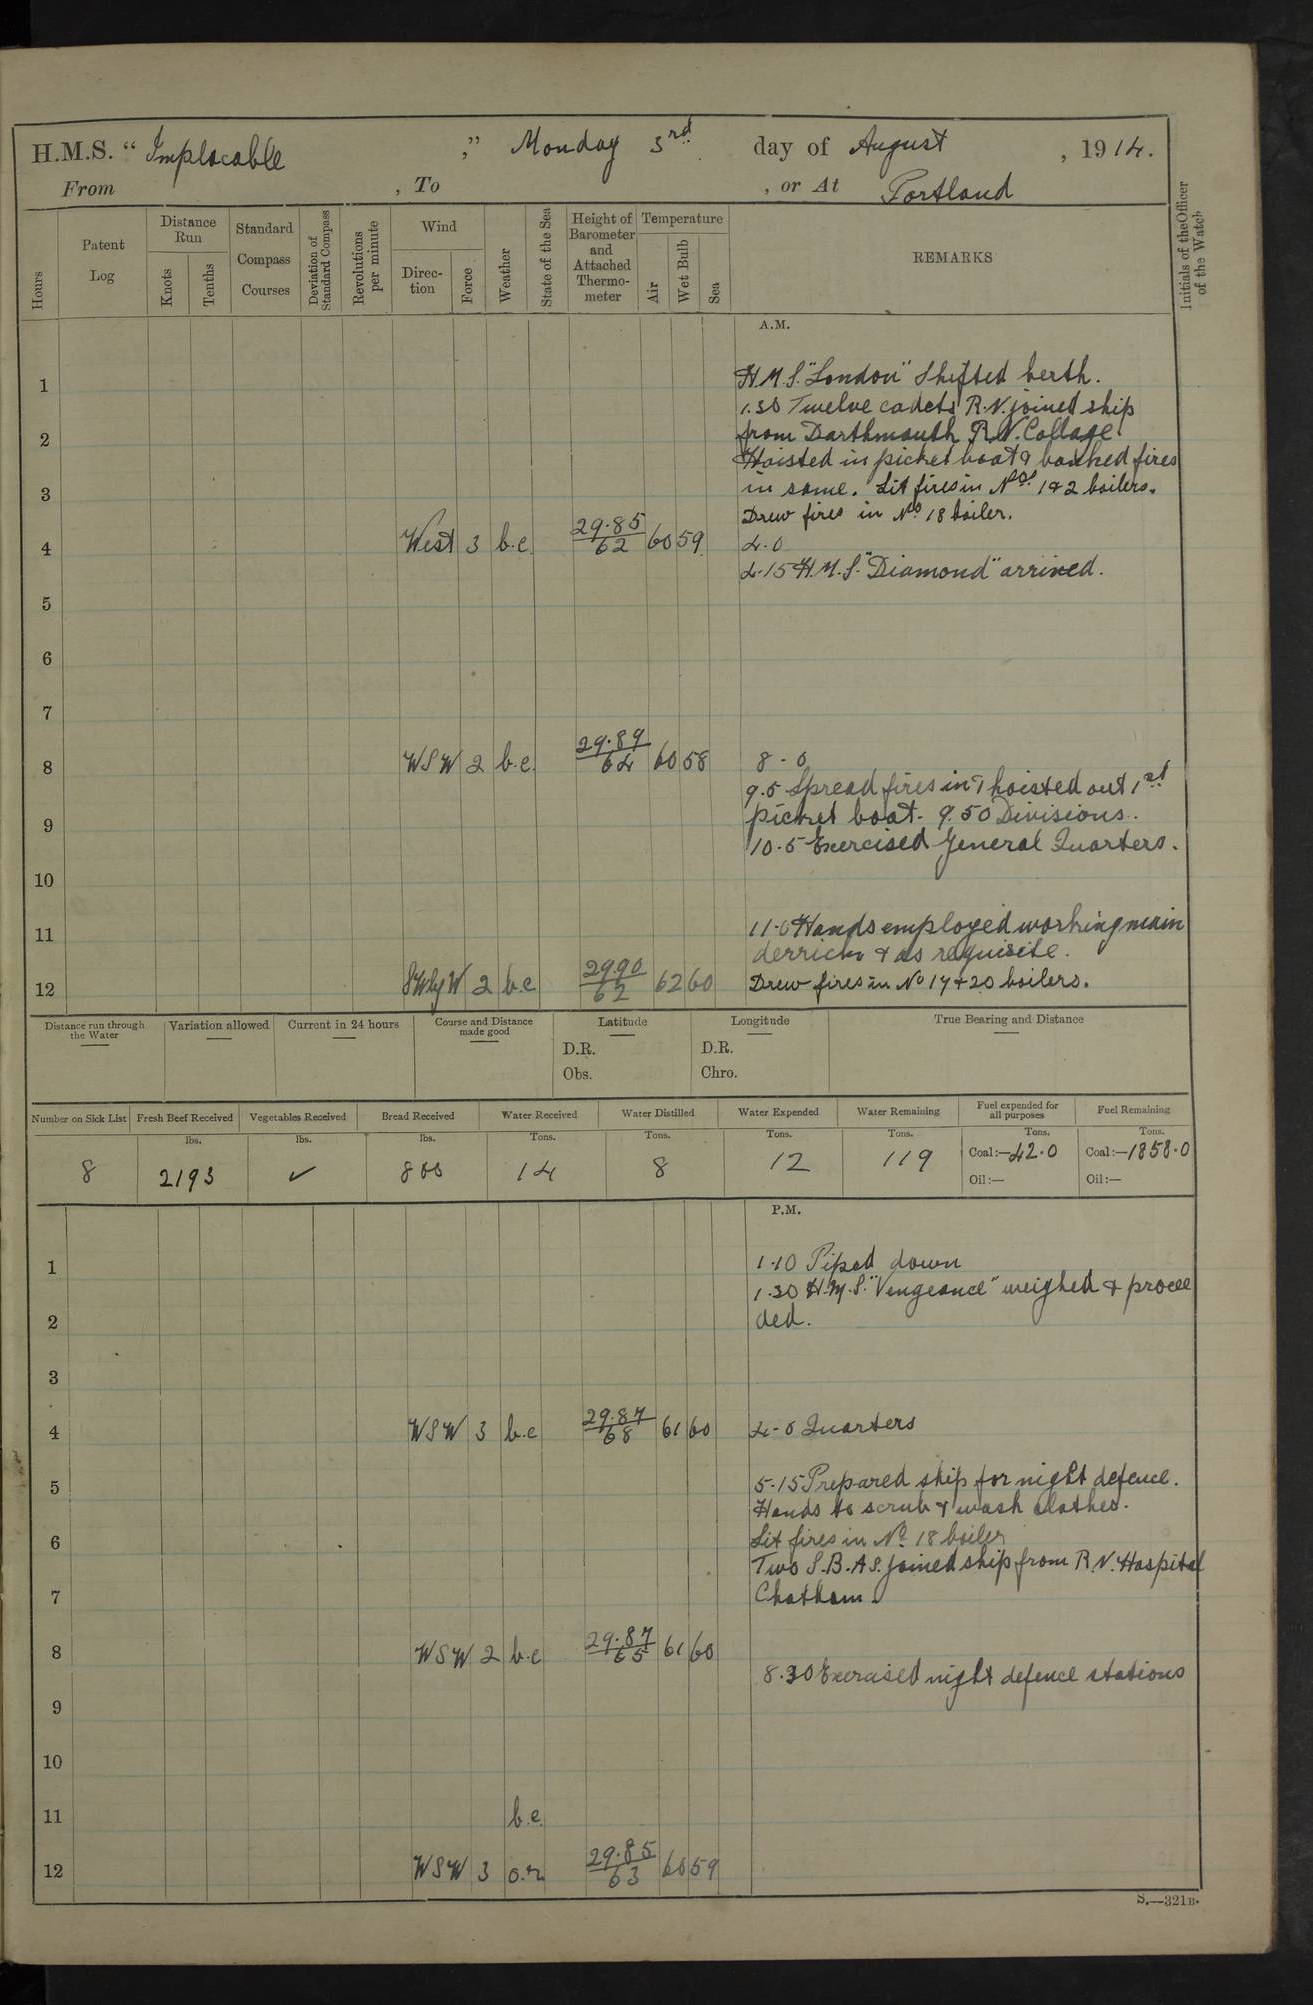 H.M.S. "Implacable," Monday 3rd day of August, 1914.
From , To , or At Portland
Hours
Patent Log
Distance Run
Knots
Tenths
Standard Compass Courses
Deviation of Standard Compass
Revolutions per minute
Wind
Direction
Force
Weather
State of the Sea
Height of Barometer and Attached Thermometer
Temperature
Air
Wet Bulb
Sea
REMARKS
Initials of the Officer of the Watch
A.M.
1 H.M.S. "London" Shifted berth.
1.30 Twelve cadets R.N. joined ship
2 from Darthmouth R.N. Collage.
Hoisted in picket boat & banked fires
3 in same. Lit fires in Nos. 1 & 2 boilers.
Drew fires in No. 18 boiler.
4 West 3 b.c. 29.85 62 60 59 4.0
4.15 H.M.S. "Diamond" arrived.
5
6
7
8 WSW 2 b.c. 29.89 64 60 58 8.0
9.5 Spread fires in & hoisted out 1st
9 picket boat. 9.50 Divisions.
10.5 Exercised General Quarters.
10
11 11.0 Hands employed working main
derrick & as requisite.
12 SWly W 2 b.c 29.90 62 62 60 Drew fires in No 17 & 20 boilers.
Distance run through the Water
Variation allowed
Current in 24 hours
Course and Distance made good
Latitude
D.R.
Obs.
Longitude
D.R.
Chro.
True Bearing and Distance
Number on Sick List
Fresh Beef Received
Vegetables Received
Bread Received
Water Received
Water Distilled
Water Expended
Water Remaining
Fuel expended for all purposes
Fuel Remaining
lbs. lbs. lbs. Tons. Tons. Tons. Tons. Tons. Tons.
8 2193 ✓ 800 14 8 12 119 Coal:—42.0 Coal:—1858.0
Oil:— Oil:—
P.M.
1 1.10 Piped down
1.30 H.M.S. "Vengeance" weighed & procee
2 ded.
3
4 WSW 3 b.c 29.87 68 61 60 4.0 Quarters
5 5.15 Prepared ship for night defence.
Hands to scrub & wash clothes.
6 Lit fires in No. 18 boiler
Two S.B.A S. joined ship from R.N. Hospital
7 Chatham.
8 WSW 2 b.c 29.87 65 61 60
8.30 Exercised night defence stations
9
10
11 b.c.
12 WSW 3 o.r 29.85 63 60 59
S.—321B.